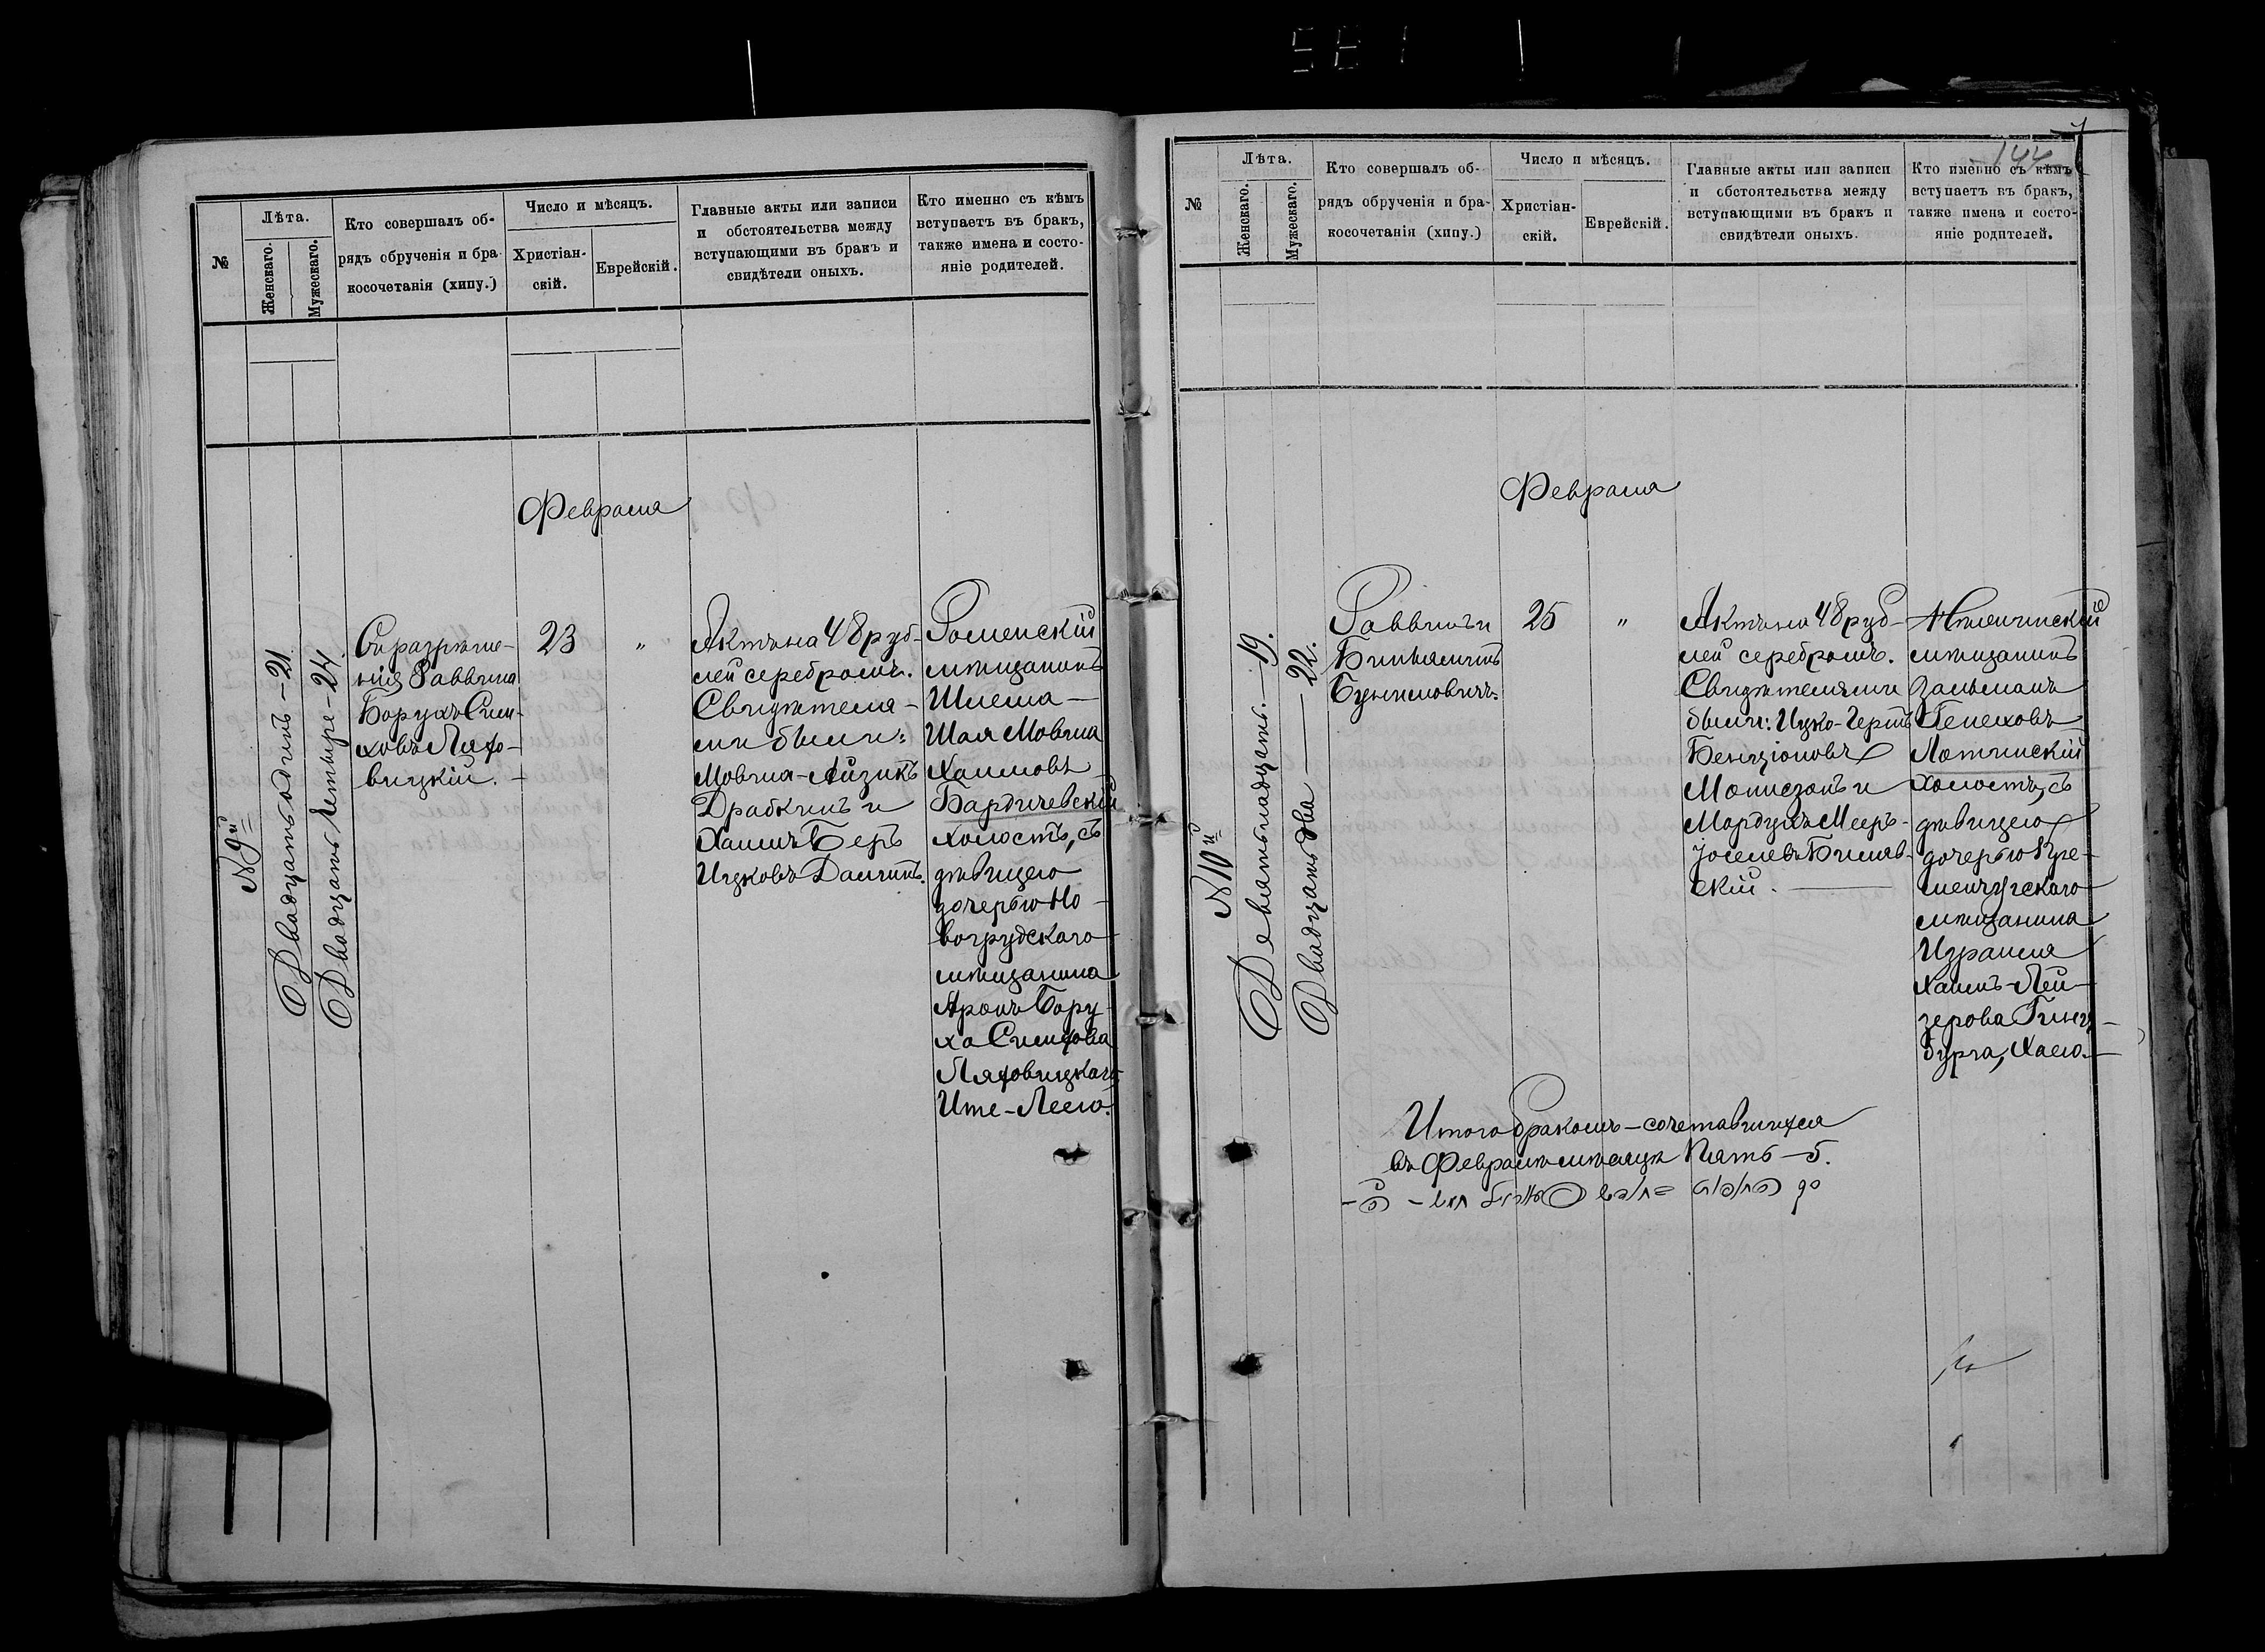 №
Лѣта.
Женскаго.
Мужескаго.
Кто совершалъ об-
рядъ обрученія и бра-
косочетанія (хипу.)
Число и мѣсяцъ.
Христіан-
скій.
Еврейскій.
Главные акты или записи
и обстоятельства между
вступающими въ бракъ и
свидѣтели оныхъ.
Кто именно съ кѣмъ
вступаетъ въ бракъ,
также имена и состо-
яніе родителей.
Февраля
№ 9й
Двадцать одинъ – 21
Двадцать Четыре – 24.
Съ разрѣше-
нія Раввина
Борухъ Сим-
ховъ Ляхо-
вицкій. –
23
"
Актъ на 48 руб-
лей серебромъ.
Свидѣтеля-
ми были:
Мовша-Айзикъ
Драбкинъ и
Хаимъ Беръ
Ицковъ
Роменскій
мѣщанинъ
Шлема –
Шая Мовша
Хаимовъ
Бардичевскій
холостъ, съ
дѣвицею
дочерью Но-
вогрудскаго
мѣщанина
Аронъ Бору-
ха Симхова
Ляховицкаго
Ите-Леею.
144
№
Лѣта.
Женскаго.
Мужескаго.
Кто совершалъ об-
рядъ обрученія и бра-
косочетанія (хипу.)
Число и мѣсяцъ.
Христіан-
скій.
Еврейскій.
Главные акты или записи
и обстоятельства между
вступающими въ бракъ и
свидѣтели оныхъ.
Кто именно съ кѣмъ
вступаетъ въ бракъ,
также имена и состо-
яніе родителей.
Февраля
№ 10й
Девятьнадцать. – 19.
Двадцать два – 22.
Раввинъ
Биньяминъ
Бунимовичъ.
25
"
Актъ на 48 руб-
лей серебромъ.
Свидѣтелями
были: Ицко-Герть
Бенціоновъ
и
Мордухъ Меръ-
Іоселевъ
скій. –
мѣщанинъ
Залманъ
холостъ, съ
дѣвицею
дочерью Кре-
менчугскаго
мѣщанина
Израиля
Хаимъ-Лей-
зерова Гинз-
бурга, Хаею. –
Итого бракомъ – сочетавшихся
въ Февралѣ мѣсяцѣ Пять – 5.